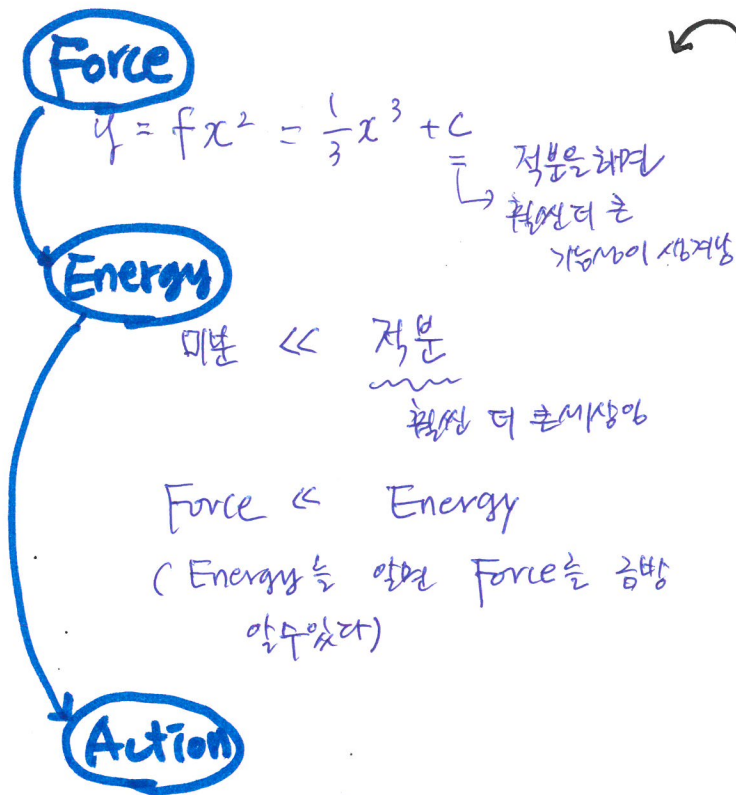 Force
y = fx² = 1/3 x³ + C
적분을 하면
훨씬 더 큰
가능성이 생겨남
Energy
미분 << 적분
훨씬 더 큰 세상임
Force << Energy
( Energy를 알면 Force를 금방
알 수 있다)
Action